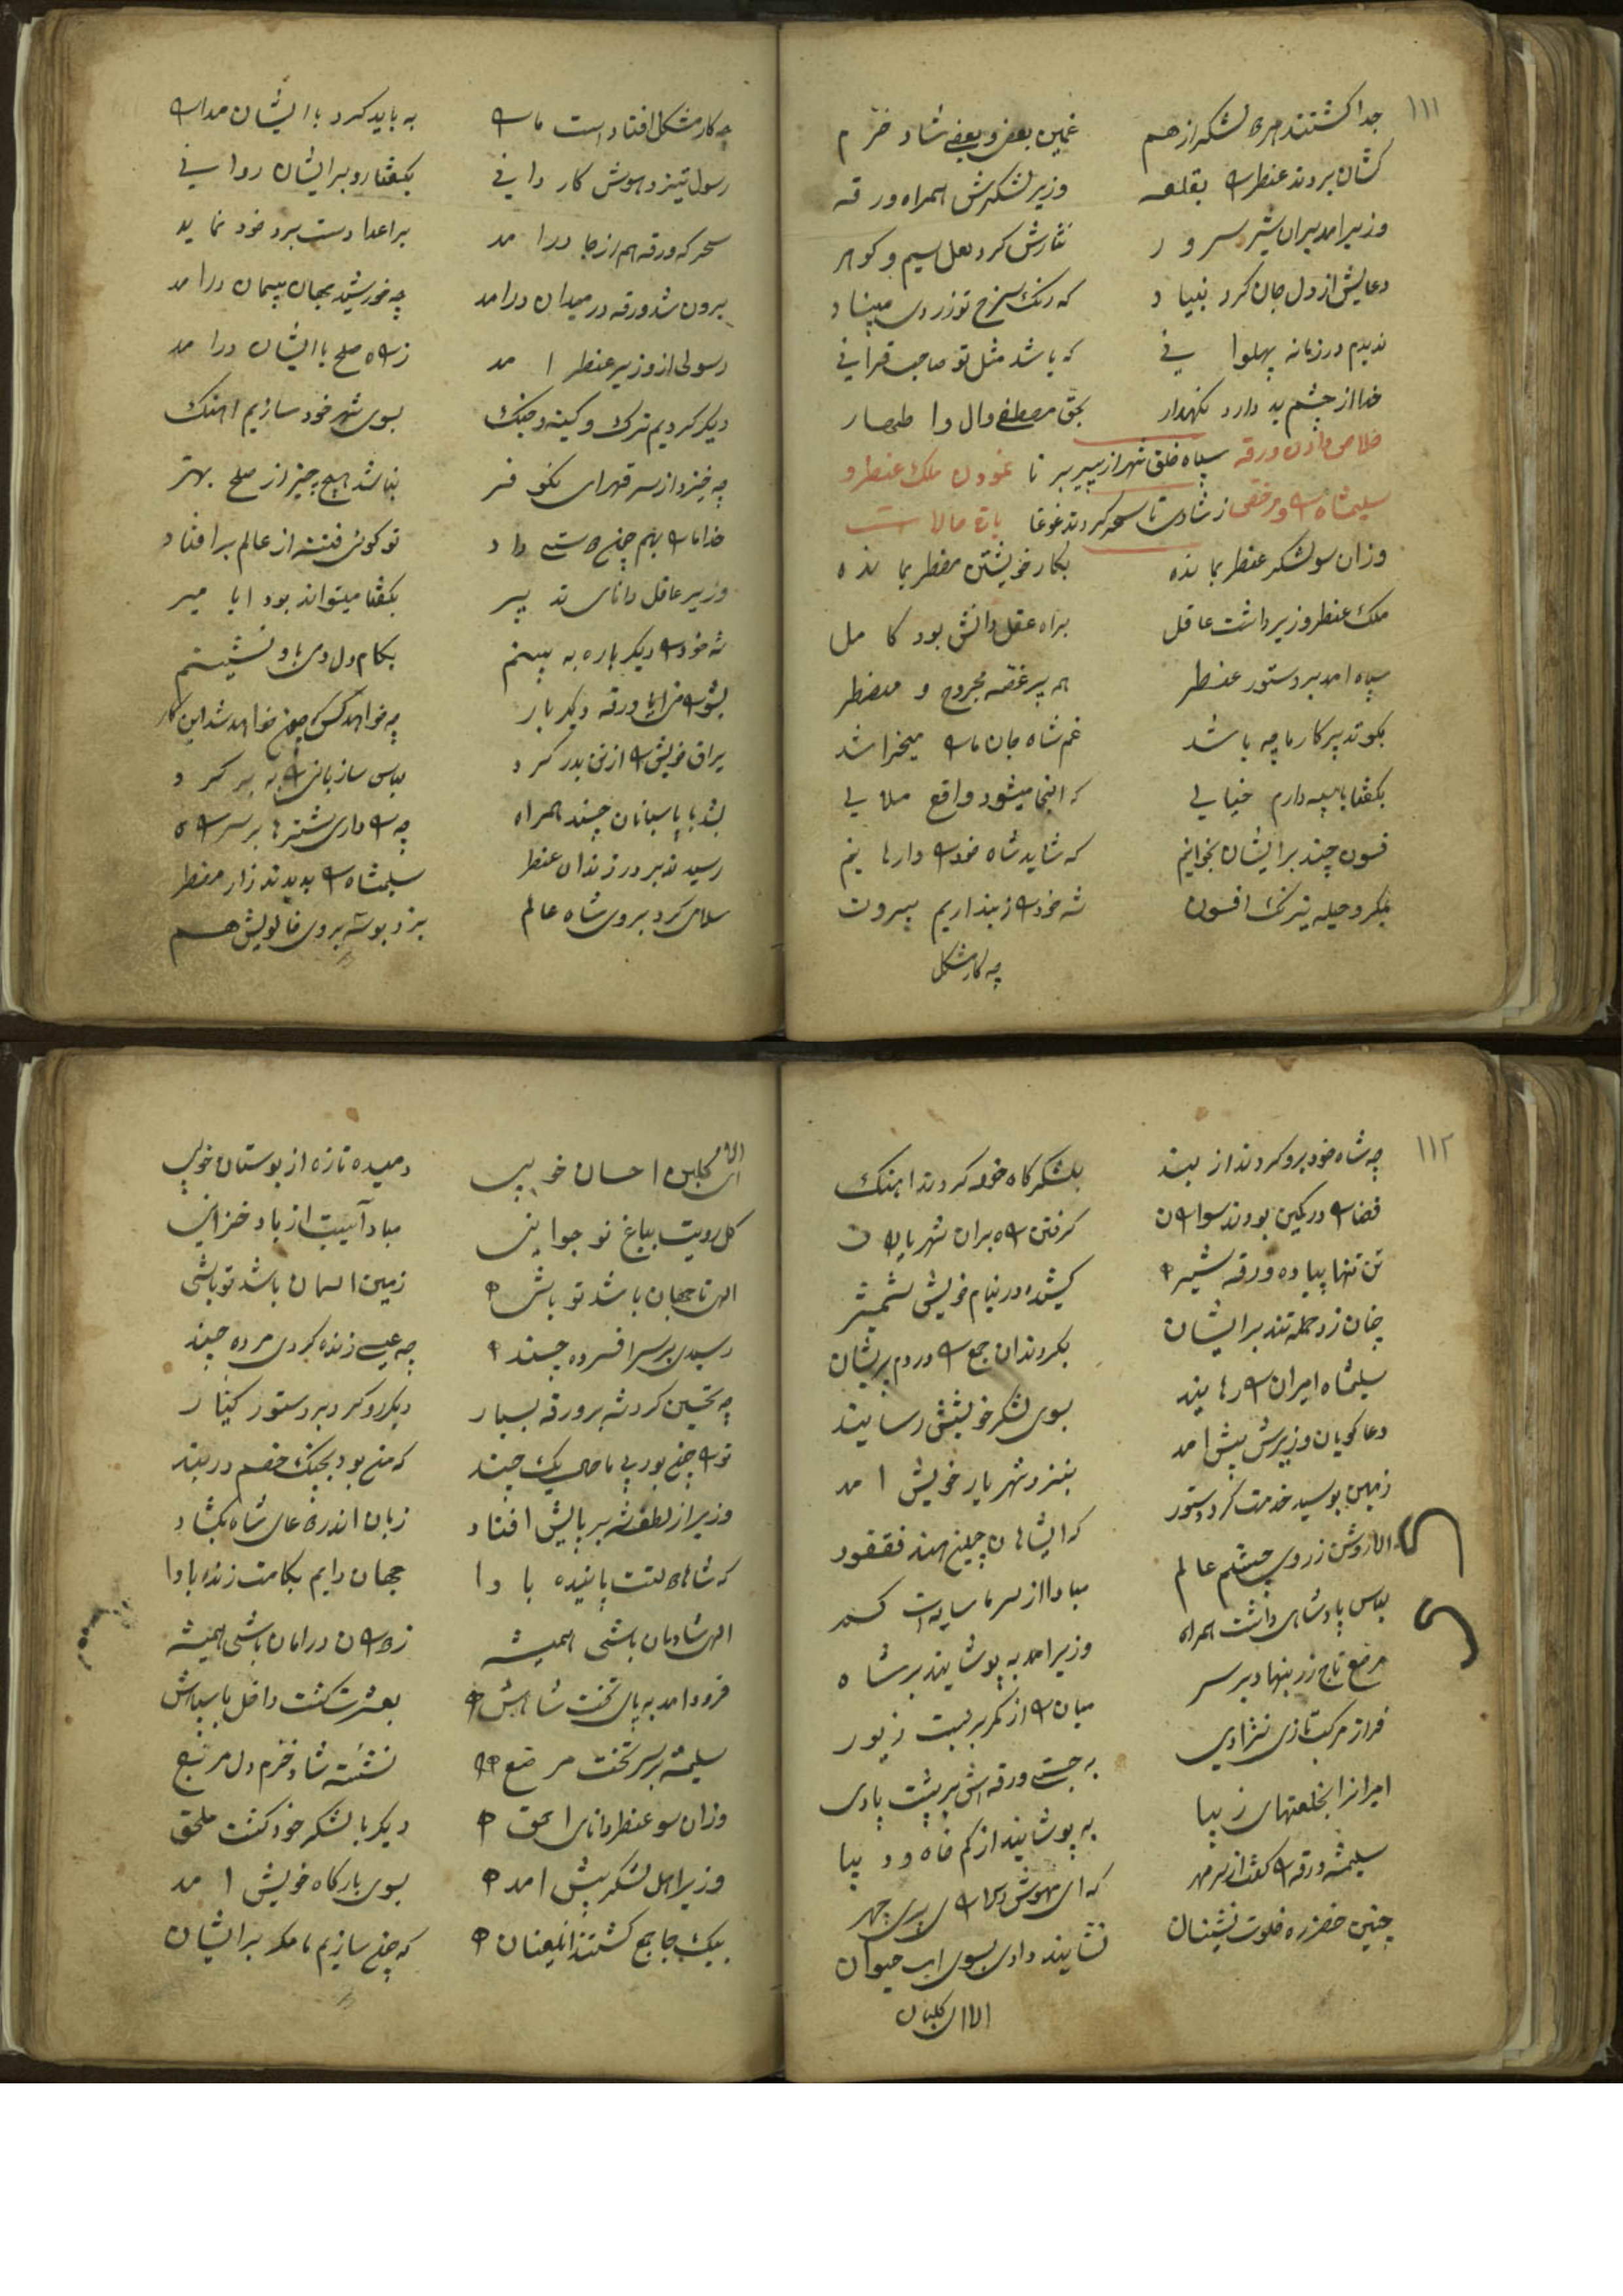 ۱۱۱
جدا گشتند هر لشکر از هم غمین بعضی و بعضی شاد خرم
کشان بردند عنطر را بقلعه وزیر لشکرش همراه ورقه
وزیر امد بران شیر سرور نثارش کرد لعل سیم و کوهر
دعایش از دل جان کرد بنیاد که رنک سرخ تو زردی مبیناد
ندیدم در زمانه پهلوانی که باشد مثل تو صاحب قرانی
خدا از چشم بد دارد نکهدار بحق مصطفی وال واطهار
خلاص دادن ورقه سپاه خلق شهر از پیر برنا نمودن ملک عنطر و
سلیمشاه را و مرخصی از شادی تا سحر کردند غوغا باقی حالات
وزان سو لشکر عنطر بمانده بکار خویشتن مضطر بمانده
ملک عنطر وزیر داشت عاقل براه عقل دانش بود کامل
سپاه امد بر دستور عنطر همه پر غصه مجروح و مضطر
بکو تدبیر کار ما چه باشد غم شاه جان ما را میخراشد
بکفتا باسپه دارم خیالی که اینجا میشود واقع ملالی
فسون چند بر ایشان بخوانیم که شاید شاه خود را وارهانیم
بمکر و حیله نیرنک افسون شه خود را ز بند اریم بیرون
چه کار مشکل
چه کار مشکل افتاد است ما را به باید کرد با ایشان مدارا
رسول تیز و هوش کاردانی بکفتا رو بر ایشان روانی
سحر که ورقه هم از جا درامد بر اعدا دست برد خود نماید
برون شد ورقه در میدان درامد چه خورشید جهان پیمان درامد
رسولی از وزیر عنطر امد ز راه صلح با ایشان درامد
دیکر کردیم ترک و کینه و جنک بسوی شهر خود سازیم اهنک
چه خیزد از سر قهر ای نکو فر نباشد هیچ چیز از صلح بهتر
خدا ما را بهم چون راستی داد تو کوئی فتنه از عالم بر افتاد
وزیر عاقل دانای تدبیر بکفتا میتواند بود ایا میر
شه خود را دیکر باره به بینم بکام دل دمی با او نشینم
بشورا من ایا ورقه دیکر بار چه خواهد کس که چون خواهد شد این کار
یراق خویش را از تن بدر کرد لباس ساربان را به بر کرد
بشد با پاسبانان چند همراه چه را داری شترها بر سر راه
رسیدند بر در زندان عنطر سلیمشاه را بدیدند زار مضطر
سلامی کرد بروی شاه عالم بزد بوسه بروی خالویش هم
۱۱۲
چه شاه خود برو کردند از بند بلشکرکاه خود کردند اهنک
قضا را در کمین بودند سواران کرفتن راه بران شهریاران
تن تنها پیاده ورقه شیر کشیده در نیام خویش شمشیر
چنان زد حمله تند بر ایشان بکردندان جمع را در دم پریشان
سلیمشاه امیران را رهانید بسوی لشکر خویشش رسانید
دعا کویان وزیرش پیش امد بنزد شهریار خویش امد
زمین بوسید خدمت کرد دستور که ایشاهان چین هند فغفور
الا روشن ز روی چشم عالم مبادا از سر ما سایه ات کم
لباس پادشاهی داشت همراه وزیر امد به پوشانید بر شاه
مرصع تاج زر بنهاد بر سر میان را از کمر بربست زیور
فراز مرکب تازی نژادی به جست ورقه اش بر پشت بادی
امیرانرا بخلعتهای زیبا به پوشانید از کم خاه و دیبا
سلیمشه ورقه را کفت از سر مهر که ای مهوش دلارای پری چهر
چنین خضر ره خلوت نشینان نشانید دادی بسوی اب حیوان
الا ای کلبن
الا ای کلبن احسان خوبی دمیده تازه از بوستان خوبی
کل رویت بباغ نوجوانی مباد آسیبت از باد خزانی
الهی تا جهان باشد تو باشی زمین اسمان باشد تو باشی
رسیدی بر سر افسرده چند چه عیسی زنده کردی مرده چند
چه تحسین کرد شه بر ورقه بسیار دیکر رو کرد بر دستور کینار
تو را چون بود بی ما حال یک چند که من بودم بجنک خصم در بند
وزیر از لطف شه بر پایش افتاد زبان اندر دعای شاه بکشاد
که شاها دولتت پاینده بادا جهان دایم بکامت زنده بادا
الهی شادمان باشی همیشه ز دوران در امان باشی همیشه
فرود امد به پای تخت شاهش بعشرت کشت داخل با سپاهش
سلیمشه بر سر تخت مرصع نشسته شاد خرم دل مربع
وزان سو عنطر دانای احمق دیکر با لشکر خود کشت ملحق
وزیر اهل لشکر پیش امد بسوی بارکاه خویش امد
بیک جا جمع کشتند انلعینان که چون سازیم ما مکر بر ایشان